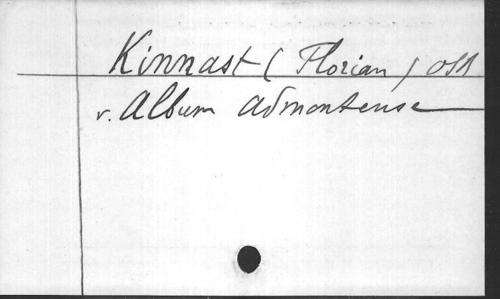 Kinnast (Florian) OSB
v. Album Admontense